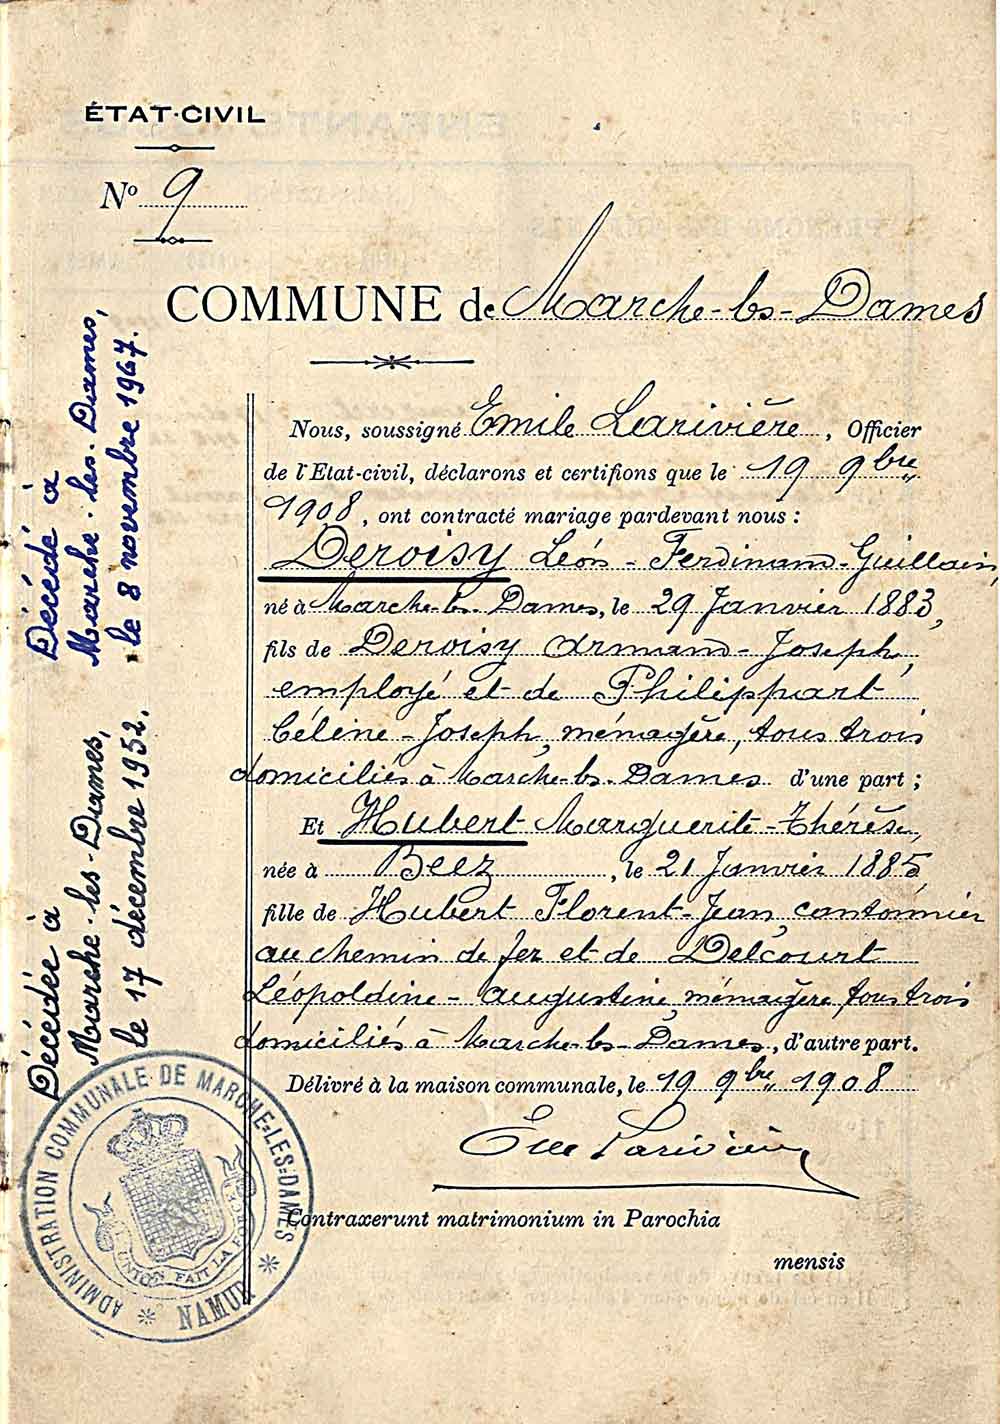 ÉTAT-CIVIL
N° 9
COMMUNE de Marche-les-Dames
Nous, soussigné Emile Larivière, Officier
de l'Etat-civil, déclarons et certifions que le 19 9bre
1908, ont contracté mariage pardevant nous :
Deroisy Léon-Ferdinand-Guillain,
né à Marche-les-Dames, le 29 Janvier 1883,
fils de Deroisy Armand-Joseph,
employé et de Philippart
Céline-Joseph, ménagère, tous trois
domiciliés à Marche-les-Dames d'une part ;
Et Hubert Marguerite-Thérèse,
née à Beez, le 21 Janvier 1885,
fille de Hubert Florent-Jean, cantonnier
au chemin de fer et de Delcourt
Léopoldine-Augustine, ménagère, tous trois
domiciliés à Marche-les-Dames, d'autre part.
Délivré à la maison communale, le 19 9bre 1908
Emile Larivière
Contraxerunt matrimonium in Parochia
mensis
Décédé à
Marche-les-Dames,
le 8 novembre 1967.
Décédée à
Marche-les-Dames,
le 17 décembre 1952.
ADMINISTRATION COMMUNALE DE MARCHE=LES=DAMES
L'UNION FAIT LA FORCE
* NAMUR *